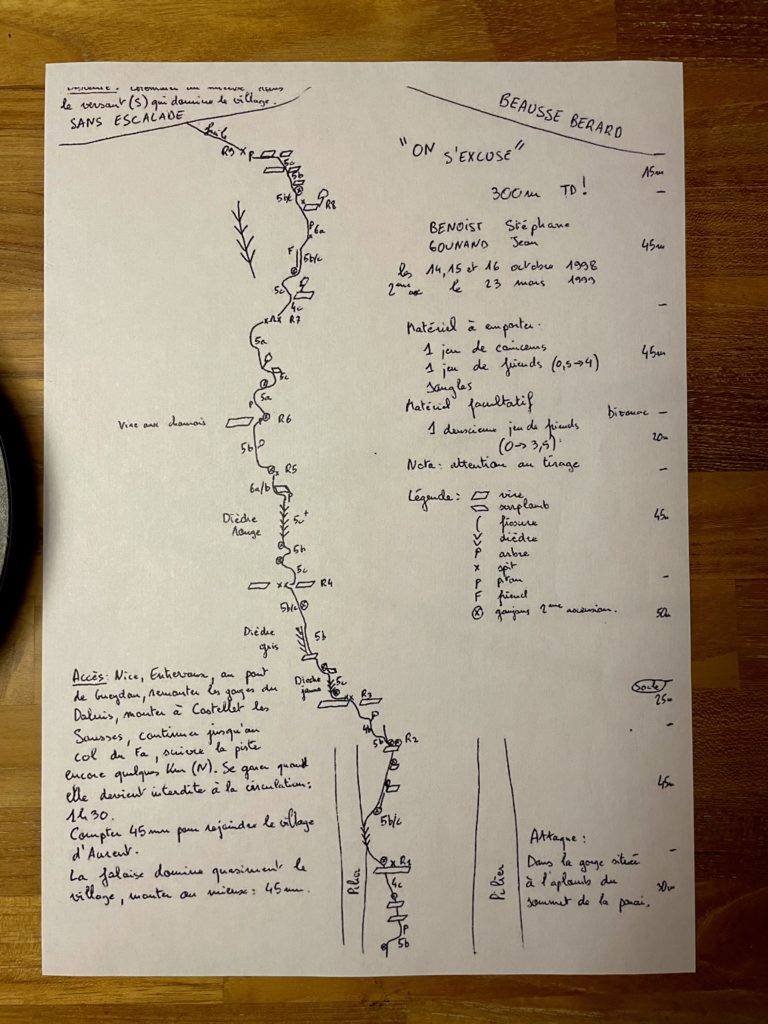 le versant (S) qui domine le village.
SANS ESCALADE
facile
BEAUSSE BERARD
"ON S'EXCUSE"
300m TD!
BENOIST Stéphane
GOUNAND Jean
les 14, 15 et 16 octobre 1998
2ème asc le 23 mars 1999
Matériel à emporter.
1 jeu de coinceurs
1 jeu de friends (0,5→4)
Sangles
Matériel facultatif
1 deuxieme jeu de friends
(0→3,5)
Nota: attention au tirage
Légende:
vire
surplomb
fissure
dièdre
P arbre
x spit
P piton
F friend
goujons 2ème ascension.
15m
45m
45m
Bivouac
20m
45m
50m
Sortie
25m
45m
30m
R9 x P
5c
5b/c
R8
6a
F
5b/c
5c
4c
R7
5a
5c
5a
P
Vire aux chamois
R6
5b
R5
6a/b
Dièdre
Rouge
5c+
5b
5c
xx
R4
5b/c
Dièdre
gris
5b
Dièdre
jaune
5c
R3
4b
5b
R2
5b/c
R1
4c
P
5b
Pilier
Pilier
Accès: Nice, Entrevaux, au pont
de Gueydan, remonter les gorges du
Daluis, monter à Castellet les
Sausses, continuer jusqu'au
col du Fa, suivre la piste
encore quelques Km (N). Se garer quand
elle devient interdite à la circulation:
1h30.
Compter 45mn pour rejoindre le village
d'Aurent.
La falaise domine quasiment le
village, monter au mieux: 45mn.
Attaque:
Dans la gorge située
à l'aplomb du
sommet de la paroi.